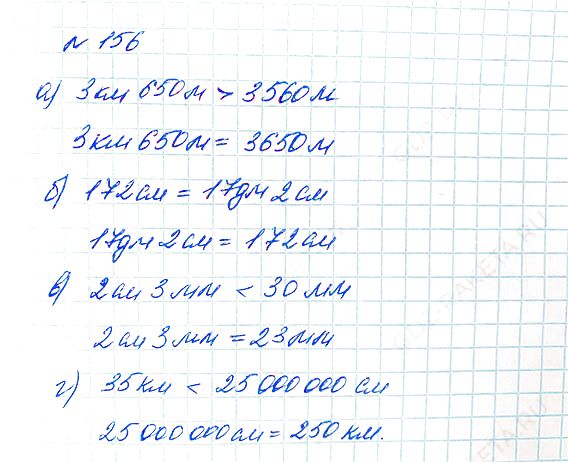 № 156
а) 3км 650м > 3560м
3км 650м = 3650м
б) 172см = 17дм 2см
17дм 2см = 172см
в) 2см 3мм < 30мм
2см 3мм = 23мм
г) 35км < 25 000 000 см
25 000 000 см = 250 км.